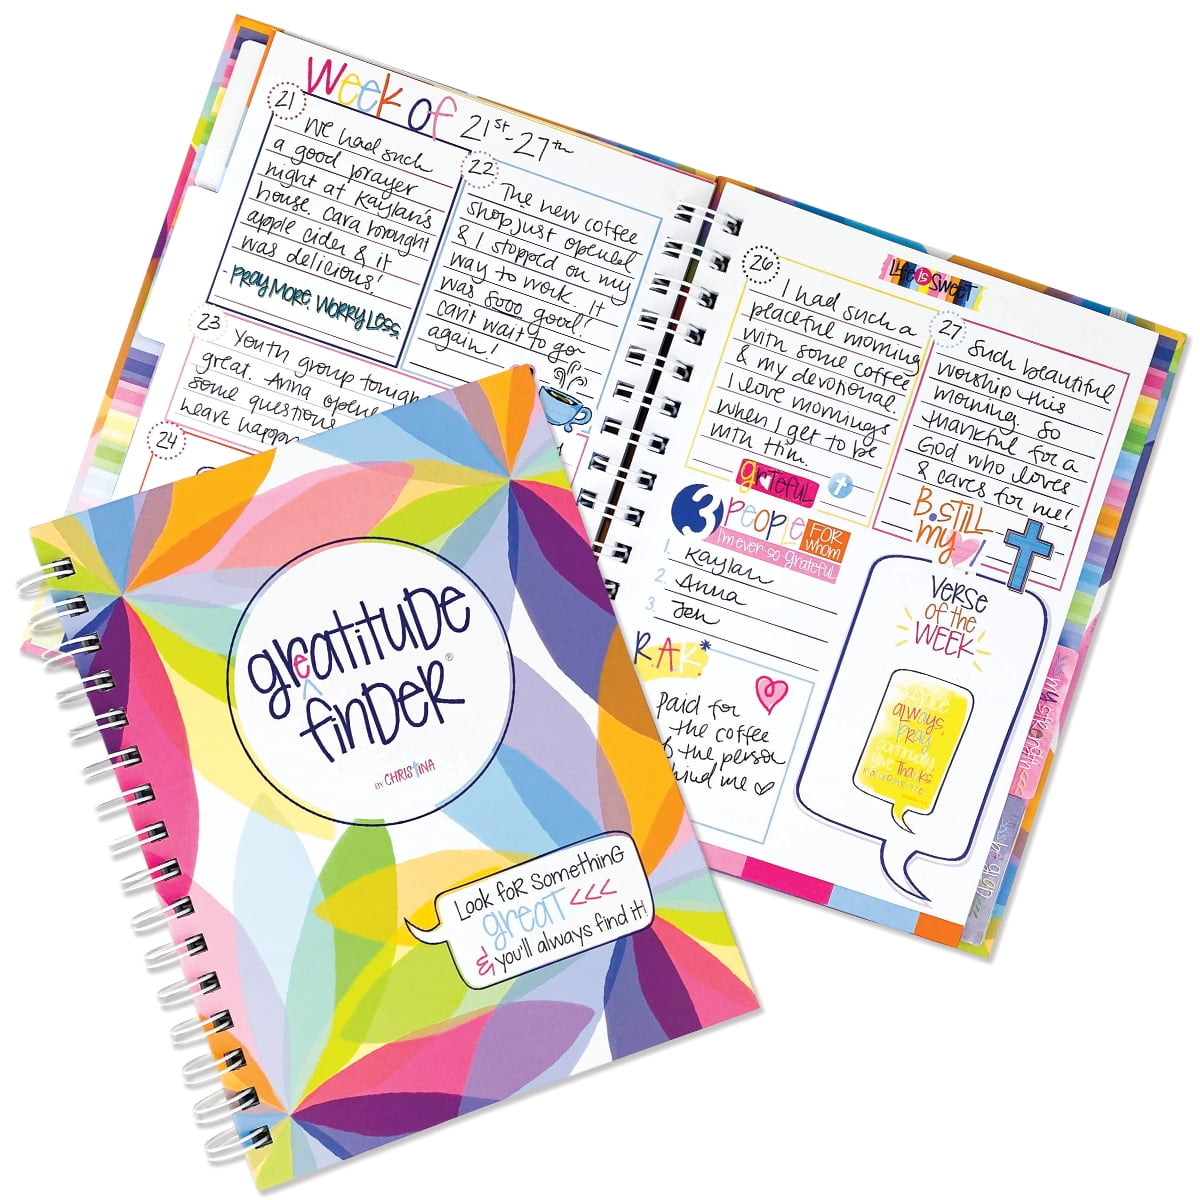 Week of 21st-27th
21
We had such
a good prayer
night at Kaylan's
house. Cara brought
apple cider & it
was delicious!
- PRAY MORE. WORRY LESS
22
The new coffee
shop just opened
& I stopped on my
way to work. It
was sooo good!
can't wait to go
again!
23
Youth group tonigh
great. Anna opene
some questions
heart happ
24
26
LIFE IS SWEET
I had such a
peaceful morning
with some coffee
& my devotional.
I love mornings
when I get to be
with Him.
grateful
27
Such beautiful
worship this
morning. So
thankful for a
God who loves
& cares for me!
B.STILL
my !
3 PEOPLE FOR whom
I'm ever-so grateful
1. Kaylan
2. Anna
3. Jen
R.A.K*
Paid for
the coffee
f the person
hind me
VERSE
OF the
WEEK
always,
PRAY
continually
give THANKS
greatitude
finder®
BY CHRISTINA
Look for something
great <<<
& you'll always find it!